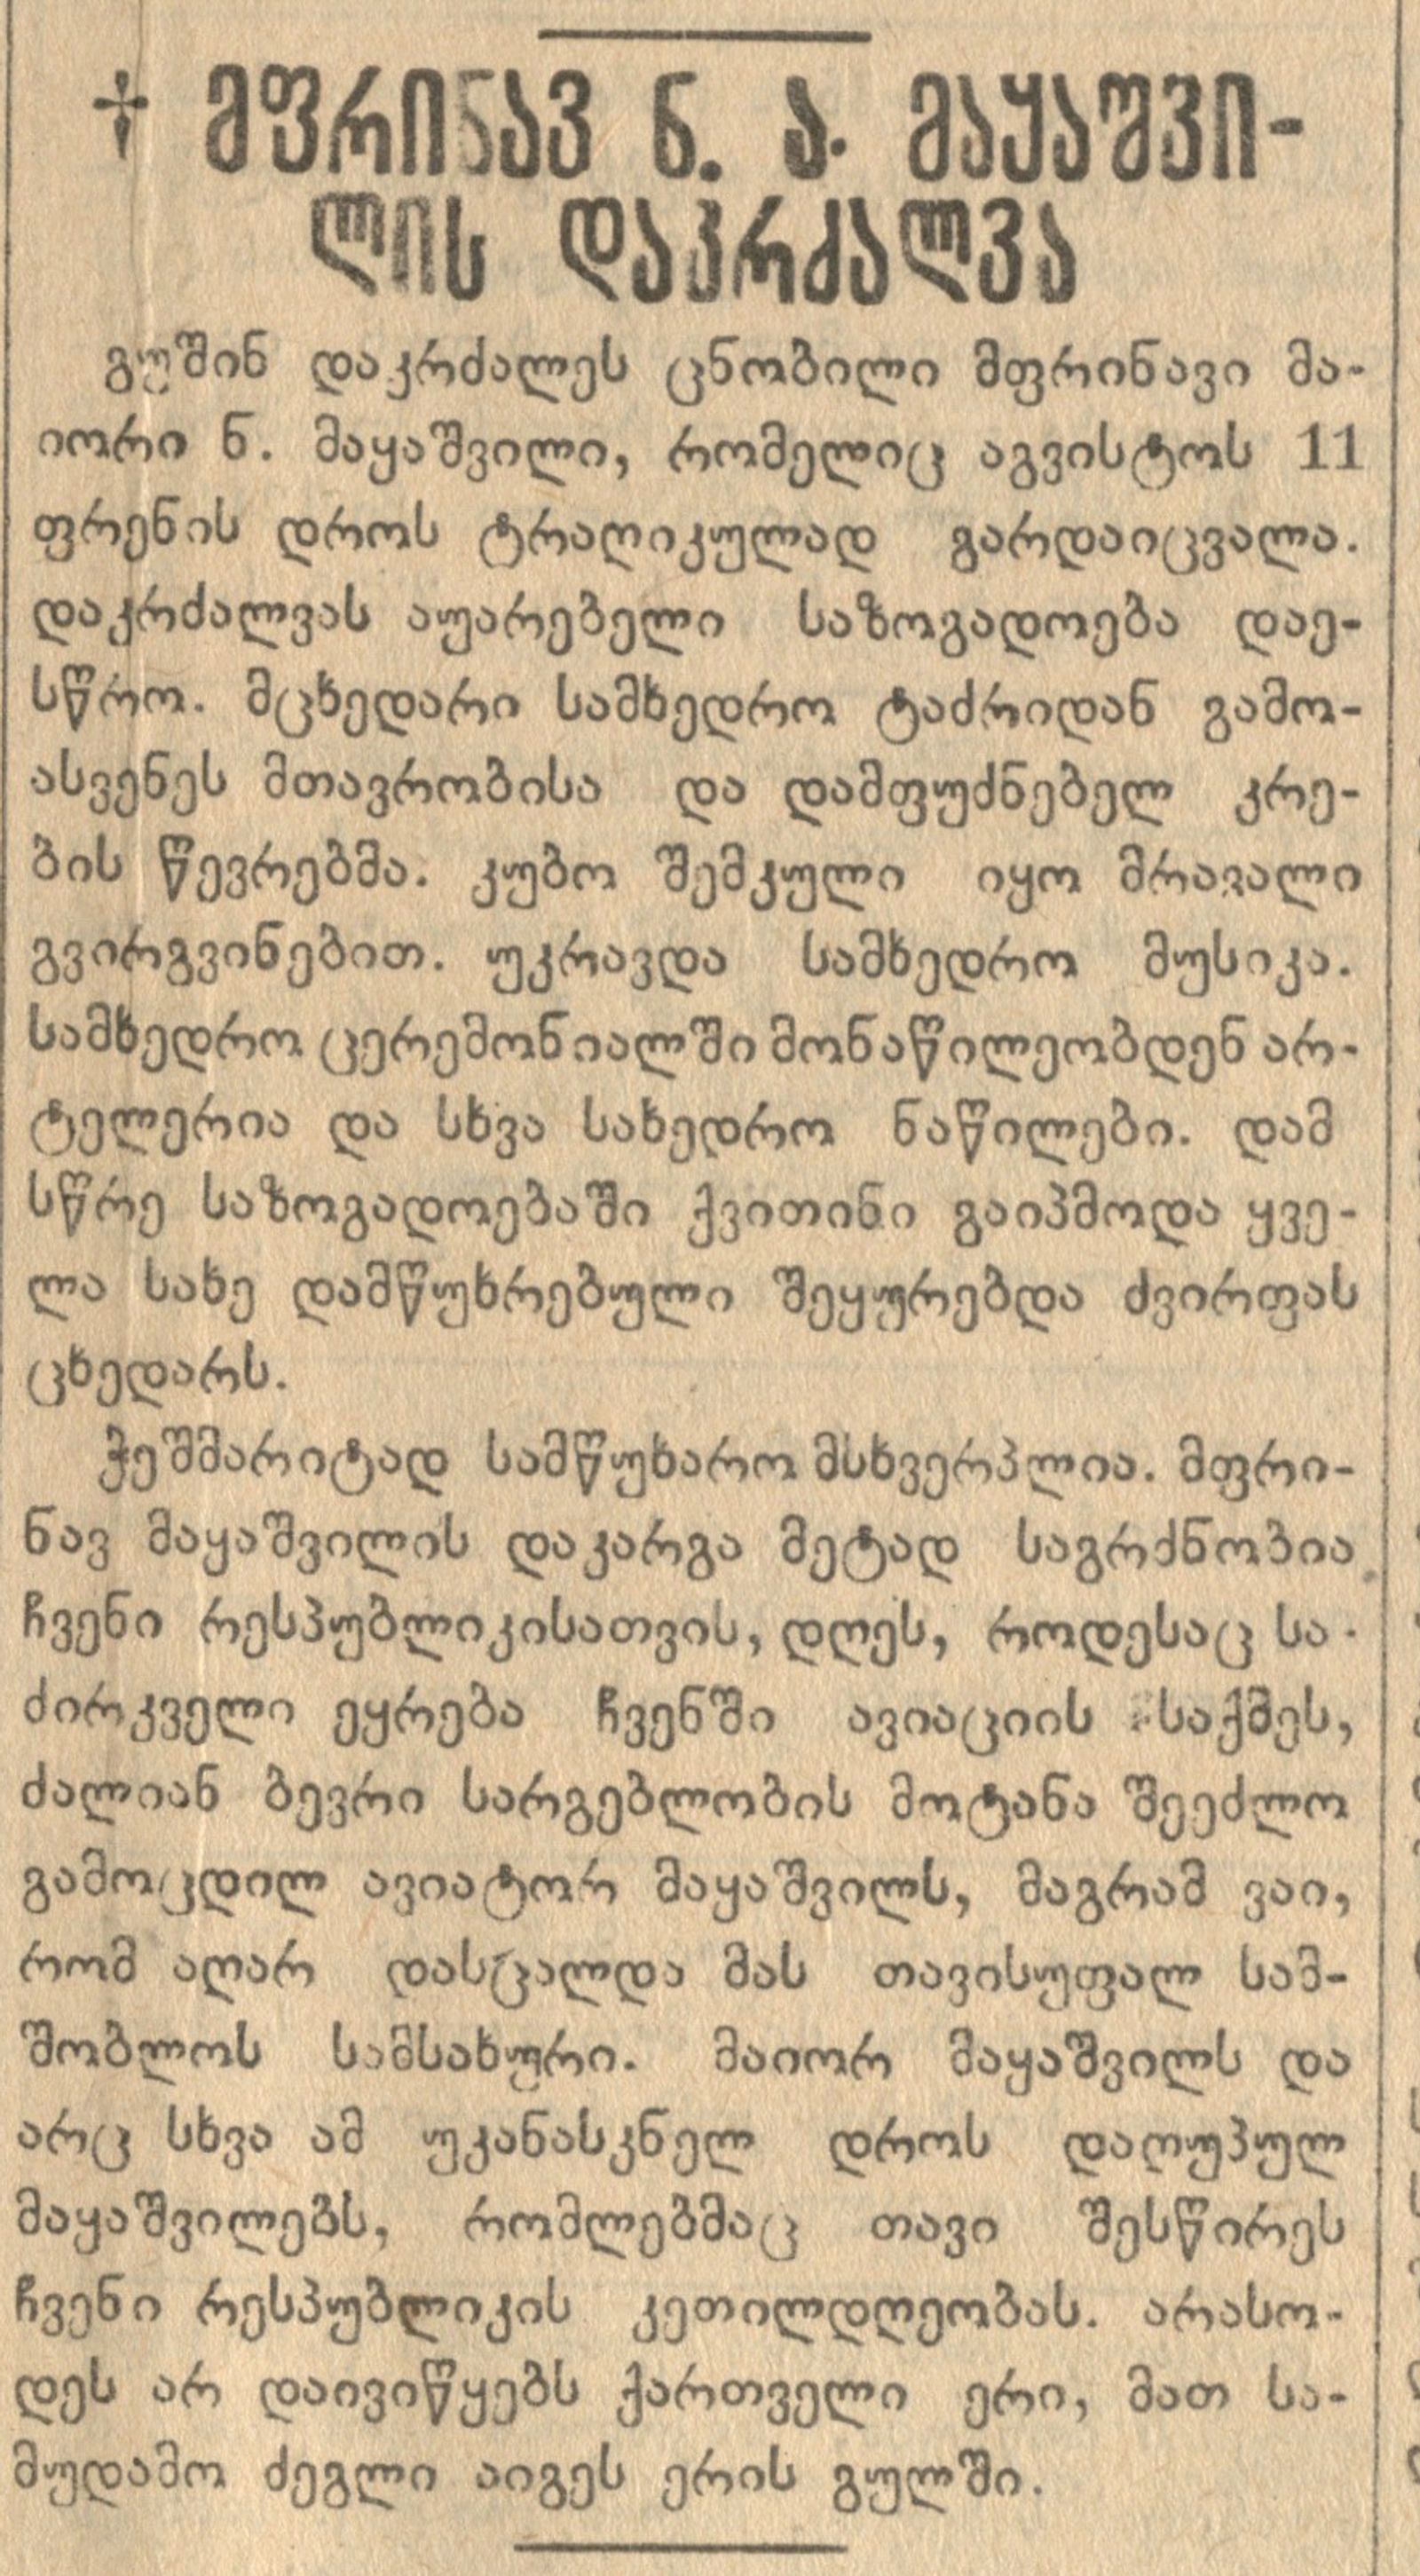 † მფრინავ ნ. ა. მაყაშვი-
ლის დაკრძალვა
გუშინ დაკრძალეს ცნობილი მფრინავი მა-
იორი ნ. მაყაშვილი, რომელიც აგვისტოს 11
ფრენის დროს ტრაღიკულად გარდაიცვალა.
დაკრძალვას აუარებელი საზოგადოება დაე-
სწრო. მცხედარი სამხედრო ტაძრიდან გამო-
ასვენეს მთავრობისა და დამფუძნებელ კრე-
ბის წევრებმა. კუბო შემკული იყო მრავალი
გვირგვინებით. უკრავდა სამხედრო მუსიკა.
სამხედრო ცერემონიალში მონაწილეობდენ არ-
ტელერია და სხვა სახედრო ნაწილები. დამ
სწრე საზოგადოებაში ქვითინი გაიპმოდა ყვე-
ლა სახე დამწუხრებული შეყურებდა ძვირფას
ცხედარს.
ჭეშმარიტად სამწუხარო მსხვერპლია. მფრი-
ნავ მაყაშვილის დაკარგა მეტად საგრძნობია
ჩვენი რესპუბლიკისათვის, დღეს, როდესაც სა-
ძირკველი ეყრება ჩვენში ავიაციის საქმეს,
ძალიან ბევრი სარგებლობის მოტანა შეეძლო
გამოცდილ ავიატორ მაყაშვილს, მაგრამ ვაი,
რომ აღარ დასცალდა მას თავისუფალ სამ-
შობლოს სამსახური. მაიორ მაყაშვილს და
არც სხვა ამ უკანასკნელ დროს დაღუპულ
მაყაშვილებს, რომლებმაც თავი შესწირეს
ჩვენი რესპუბლიკის კეთილდღეობას. არასო-
დეს არ დაივიწყებს ქართველი ერი, მათ სა-
მუდამო ძეგლი აიგეს ერის გულში.